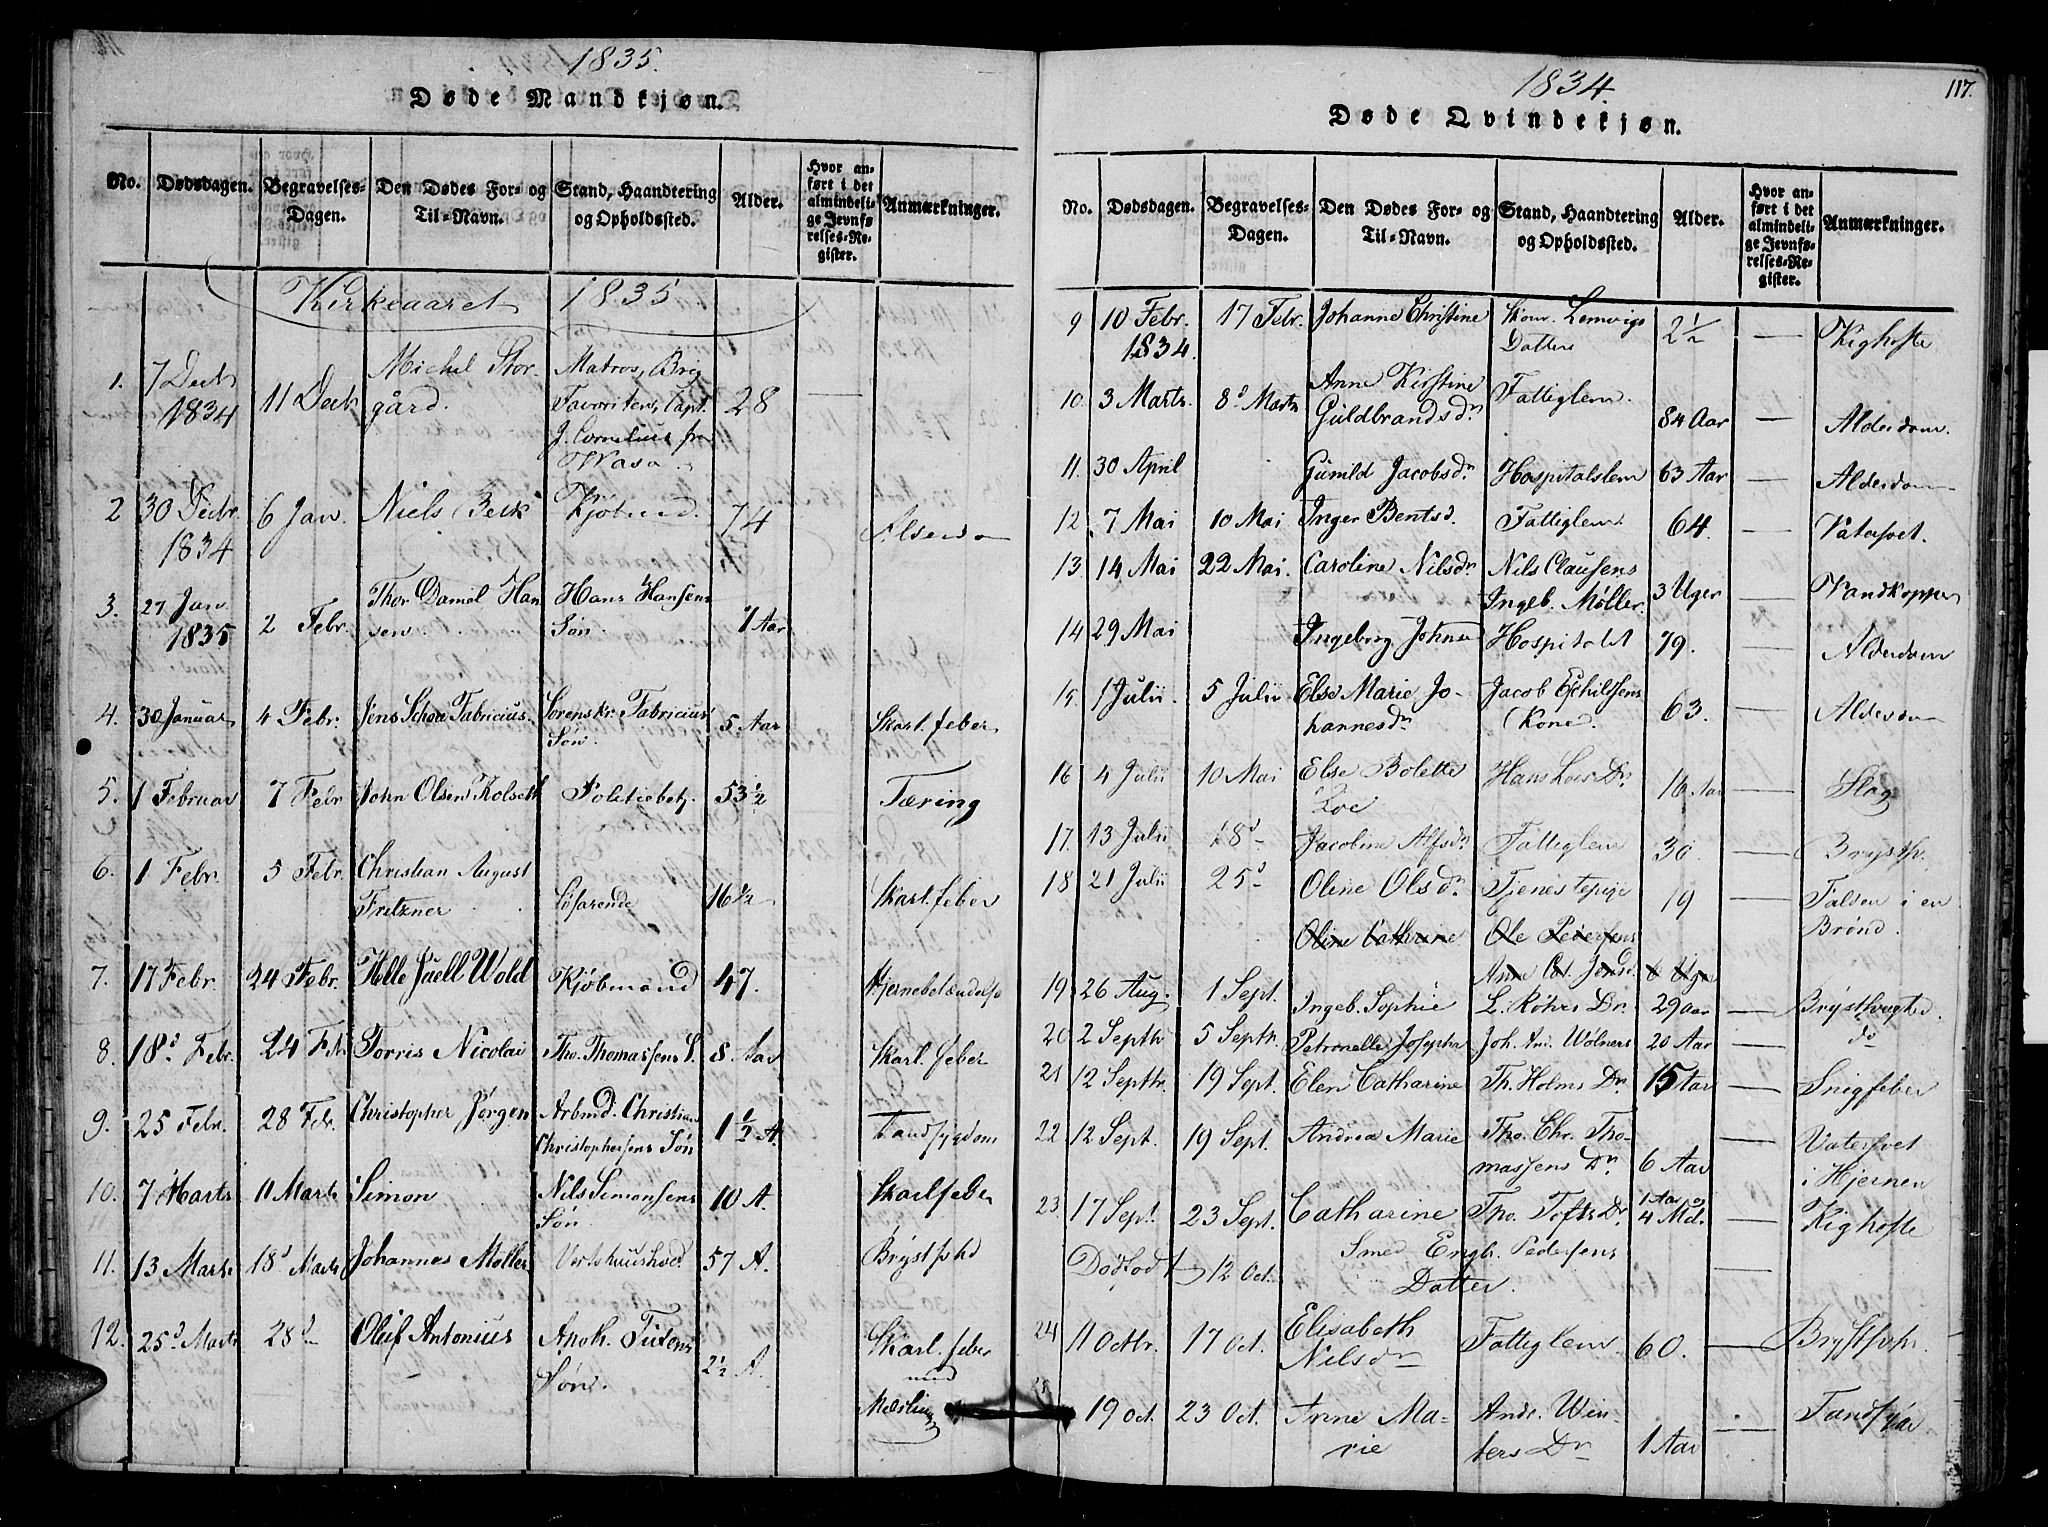 1835.
Døde Mandkjøn.
No.
Dødsdagen.
Begravelses-
Dagen.
Den Dødes For- og
Til-Navn.
Stand, Haandtering
og Opholdssted.
Alder.
Hvor an-
ført i det
almindeli-
ge Jevnfø-
relses-Re-
gister.
Anmærkninger.
Kirkeaaret 1835
1. 7 Decbr 1834 11 Decbr Michel Stor-
gård. Matros, Brig
Favoriten, Capt.
J. Cornelius fra
Wasa 28 —
2 30 Decbr. 1834 6 Jan. Niels Beck Kjøbmd 74
3. 27 Jan 1835 2 Febr. Thor Daniel Han
sen. Hans Hansens
Søn. 7 Aar
4. 30 Januar 4 Febr. Jens Schow Fabricius Sorenskr. Fabricius'
Søn. 5 Aar Skarl. feber
5. 1 Februar 7 Febr John Olsen Kolseth Politiebetj. 53 1/2 Tæring
6. 1 Febr. 5 Febr. Christian August
Fritzner Søfarende 16 1/2 Skarl. feber
7. 17 Febr. 24 Febr. Jaell Wold Kjøbmand 47. Hjernebetændelse
8. 18d Febr. 24 Feb Torris Nicolai Tho. Thomassens S. 8 Aar Skarl. feber
9. 25 Febr. 28 Febr. Christopher Jørgen Arbmd. Christian
Christophersens Søn 1 1/2 A. Tandsygdom
10. 7 Marts 11 Marts Simon Nils Simonsens
Søn 10 A. Skarlfeber
11. 13 Marts 18d Marts Johannes Møller Vertshuushold 57 A.
12. 25d Marts 28d Oluf Antonius Apoth. Tidens
Søn. 2 1/2 A. Skarl. feber
med
1834.
117.
Døde Qvindekjøn.
No.
Dødsdagen.
Begravelses-
Dagen.
Den Dødes For- og
Til-Navn.
Stand, Haandtering
og Opholdssted.
Alder.
Hvor an-
ført i det
almindeli-
ge Jevnfø-
relses-Re-
gister.
Anmærkninger.
9 10 Febr. 1834. 17 Febr. Johanne Christine Skom. Lemvigs
Datter 2 1/2 — Kighoste
10. 3 Marts. 8d Marts Anne Kirstine
Guldbrandsdr. Fattiglem. 84 Aar — Alderdom.
11. 30 April Jacobsdr. Hospitalslem 63 Aar — Alderdom
12 7 Mai 10 Mai Inger Bentsd. Fattiglem. 64. — Vatersot.
13. 14 Mai 22 Mai. Caroline Nilsdr Nils Clausens
Ingeb. Møller. 3 Uger — Vandkopper
14 29 Mai Ingeborg Johnsd Hospitalet 79. — Alderdom
15 1 Julii 5 Julii Else Marie Jo-
hannesdr. Jacob Eskildsens
Kone. 63. — Alderdom
16 4 Julii 10 Mai Else Bolette
Loe Hans Loes Dr. 16 Aar — Slag
17. 13 Julii 18d Jacobine Alfsdr. Fattiglem 30. — Brystsp.
18 21 Julii 25d Oline Olsdr. Tjenestepige 19 — Falden i en
Brønd.
Oline Cathrine Ole Pedersens
Anne Cat. Jensd. 6 Uger
19 26 Aug. 1 Sept. Ingeb. Sophie L. Røhrs Dr. 29 Aar —
20 2 Septbr 5 Septbr. Petronelle Josepha Joh. And. Wølners 20 Aar — do
21 12 Septbr. 19 Sept. Elen Catharine Th. Holms Dr. 15 Aar — Snigfeber
22 12 Sept. 19 Sept. Andrea Marie Tho. Chr. Tho-
massens Dr. 6 Aar — Vatersot
i Hjernen
23. 17 Sept. 23 Sept. Catharine Tho. Tofts Dr. 1 Aar og
4 Md. — Kighoste
Dødfødt — 12 Oct. Smed Engb. Pedersens
Datter.
24 11 Octbr. 17 Oct. Elisabeth
Nilsdr Fattiglem. 60. — Brystsp.
25 19 Oct. 23 Oct. Anne Ma-
rie And. Win-
ters Dr 1 Aar —